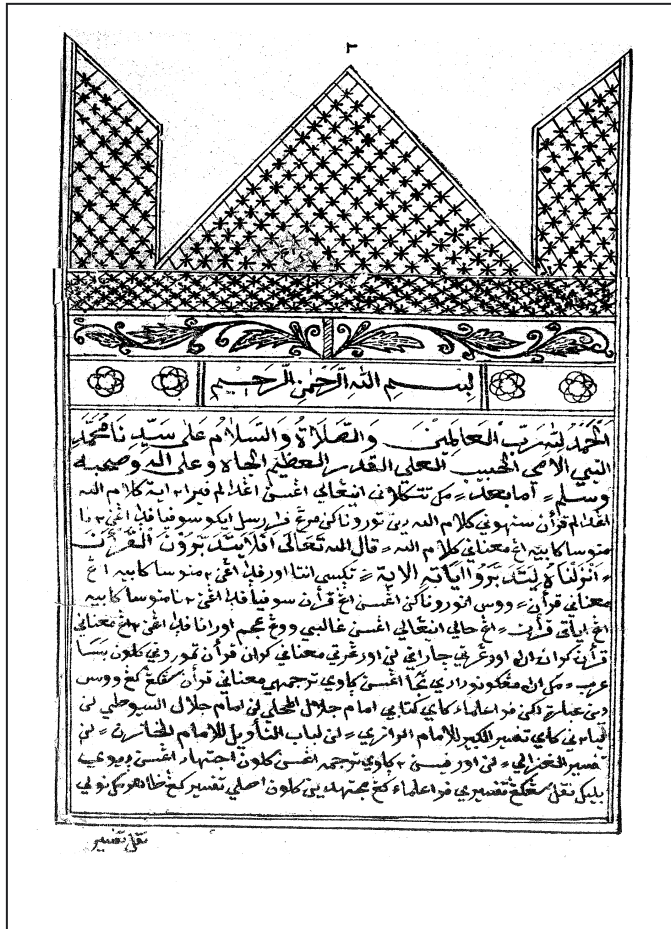 ٢
بسم الله الرحمن الرحيم
الحمد لله رب العالمين والصلاة والسلام على سيدنا محمد
النبي الامي الحبيب العلي القدر العظيم الجاه وعلى اله وصحبه
وسلم امابعد مك تتكلانى ايڠغالي اڠسن اڠدالم فيرا٢ اية كلام الله
اڠدالم قرأن ستهوني كلام الله دين توروناكن مرڠ رسل ايكو سوفيا فدا اڠن٢
منوسا كابيه اڠ معناني كلام الله قال الله تعالى افلا يتدبرون القرأن
انزلناه ليتدبروا اياته الاية تڮسى انتا اورا فدا اڠن٢ منوسا كابيه اڠ
معناني قرأن ووس انوروناكن اڠسن اڠ قرأن سوفيا فدا اڠن٢ منوسا كابيه
اڠ اياتي قرأن اڠ حالي ايڠغالي اڠسن غالبي ووڠ عجم اورانا فدا اڠن٢ اڠ معناني
قرأن كران قرأن تموروني كلون بسا
عرب مك اڠسن ڮاوي ترجمهي معناني قرأن سڠكڠ كڠ ووس
دين عبارتاكن فرا علماء كاي كتابي امام جلال المحلي لن امام جلال السيوطي لن
كاي تفسير الكبير للامام الرازي لن لباب التأويل للامام الخازن لن
تفسير الغزالي لن اورا ڮاوي ترجمه اڠسن كلون اجتهاد اڠسن ديوي
باليك نقل سڠكڠ تفسيري فرا علماء كڠ مجتهدين كلون اصلي تفسير كڠ ظاهر مك نولي
نقل تفسير